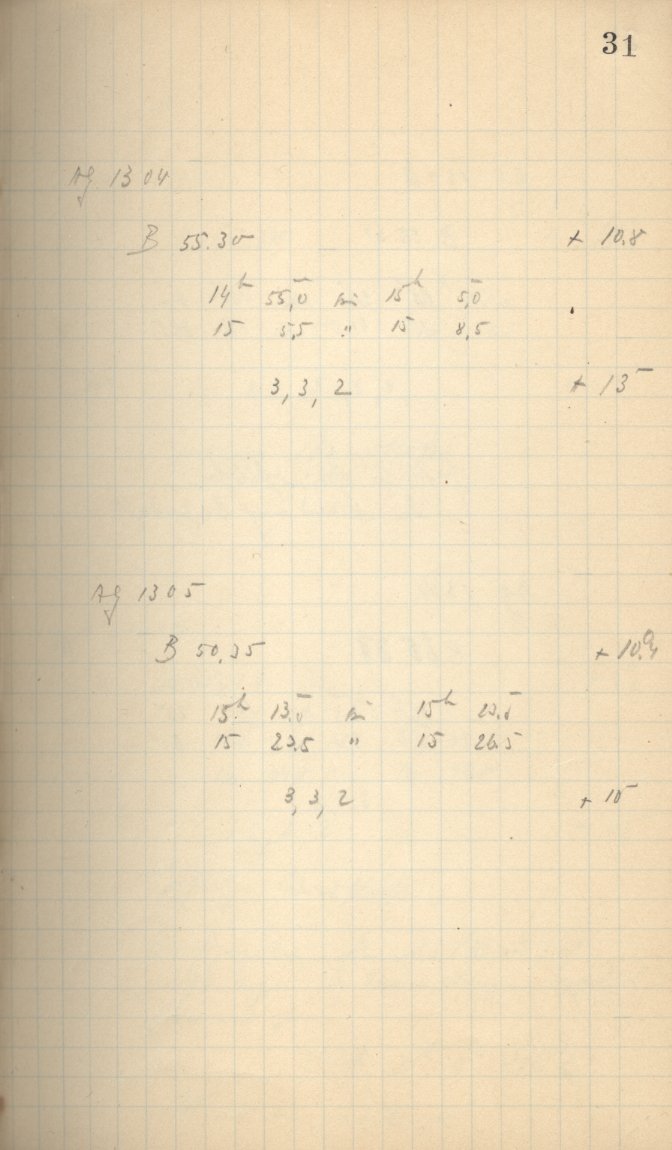 31
Ag 1304
B 55.30 + 10.8
14h 55,0 bis 15h 5,0
15 5,5 " 15 8,5
3, 3, 2 + 13
Ag 1305
B 50.35 + 10.4
15h 13.5 bis 15h 23.5
15 23.5 " 15 26.5
3, 3, 2 + 15